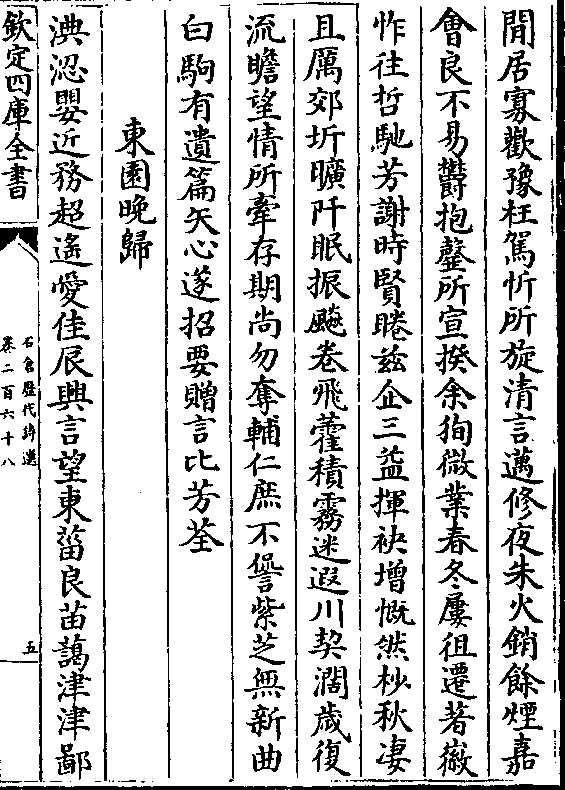 閒居寡歡豫枉駕忻所旋清言邁修夜朱火銷餘煙嘉
會良不易欝抱罄所宣揆余狥微業春冬屢徂遷著徽
怍往哲馳芳謝時賢睠兹企三益揮袂增慨然杪秋凄
且厲郊圻曠阡眠振飈卷飛藿積霧迷遐川契濶歲復
流瞻望情所牽存期尚勿奪輔仁庶不諐紫芝無新曲
白駒有遺篇矢心遂招要贈言比芳荃
東園晚歸
淟涊嬰近務超遙愛佳辰興言望東菑良苗藹津津鄙
欽定四庫全書
石倉歷代詩選
卷二百六十八
五